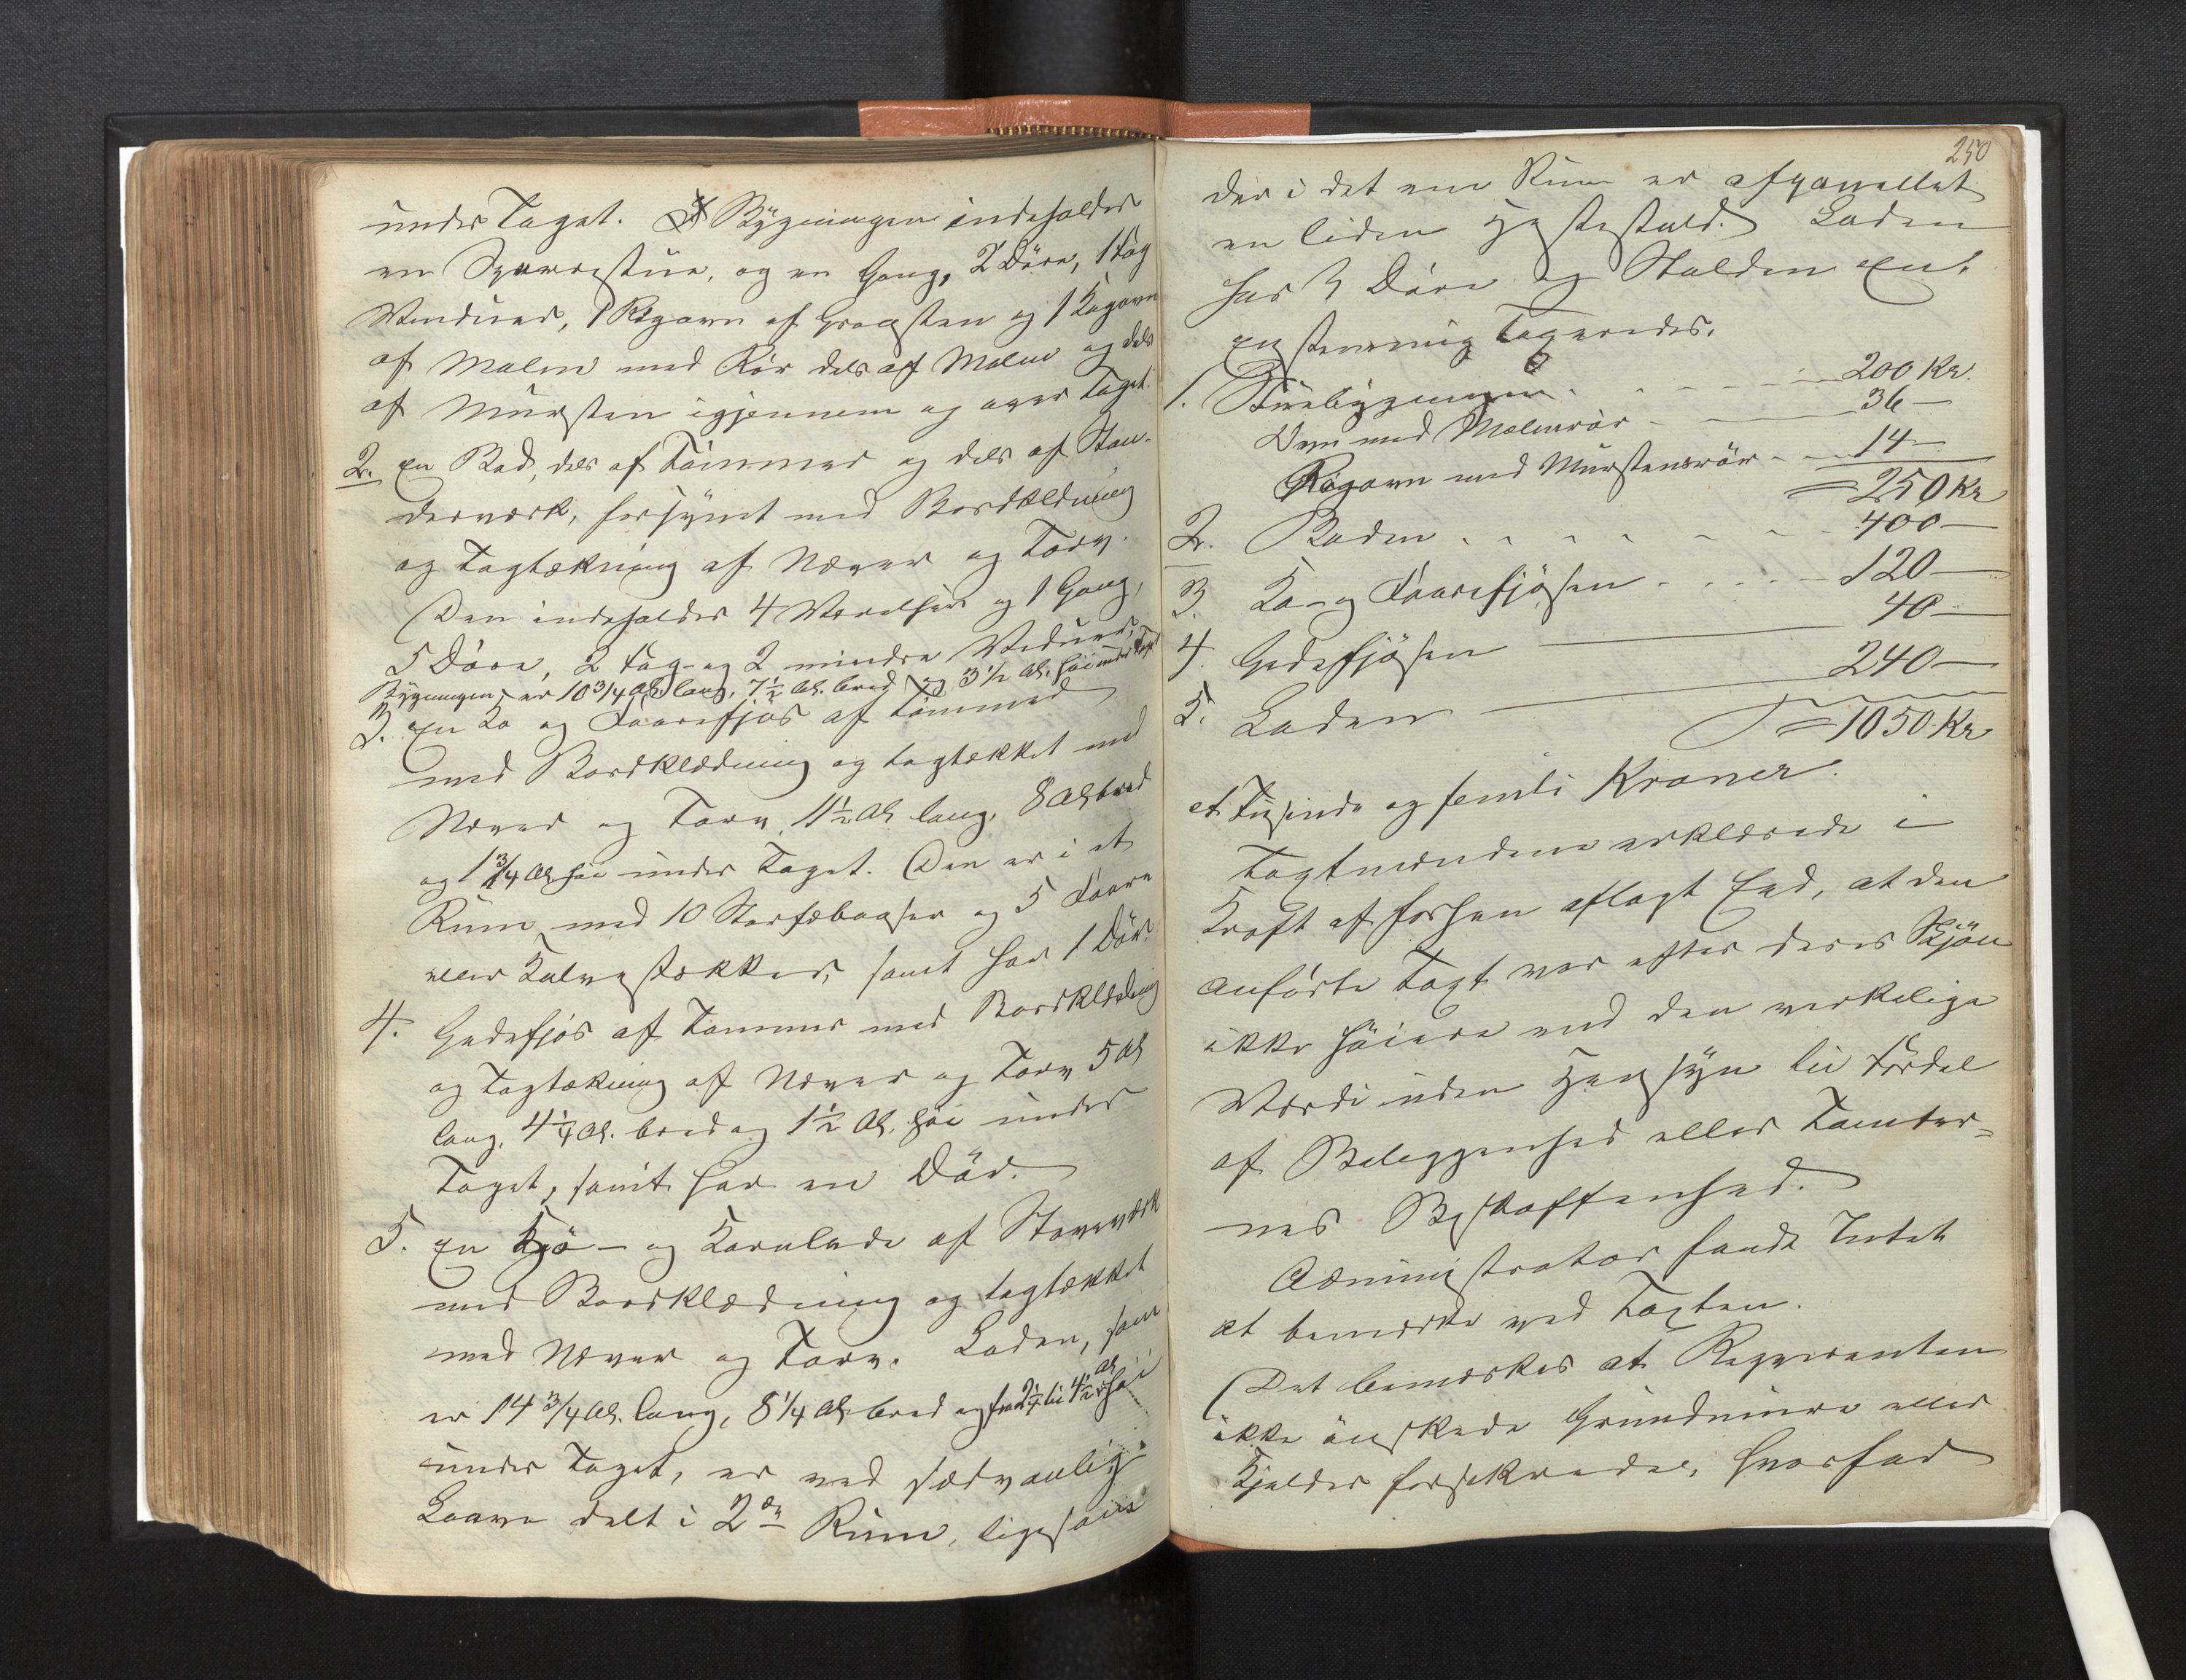 under Taget. Bygningen indeholder
en Sperrestue, og en Gang, 2 Döre, 1 Fag
Vinduer, 1 Rögovn af Graasten og 1 Kogovn
af Malm med Rör dels af Malm og dels
af Mursten igjennem og over Taget.
2. en Bod, dels af Tömmer og dels af Stan-
derværk, forsynet med Bordklædning
og Tagtækning af Næver og Torv.
Den indeholder 4 Værelser og 1 Gang,
5 Döre, 2 Fag- og 2 mindre Vinduer,
Bygningen er 10 3/4 Al. lang, 7 1/2 Al. bred og 3 1/2 Al. höi under Taget
3. en Ko og Faarefjös af Tömmer
med Bordklædning og tagtækket med
Næver og Torv, 11 1/2 Al lang, 8 Al bred
og 1 3/4 Al. höi under Taget. Den er i et
Rum med 10 Storfæbaaser og 5 Faare
eller Kalvestækker, samt har 1 Dör.
4. Gedefjös af Tömmer med Bordklædning
og Tagtækning af Næver og Torv 5 Al
lang, 4 1/4 Al. bred og 1 1/2 Al. höi under
Taget, samt har en Dör.
5. en Hö- og Kornlade af Staveværk
med Bordklædning og tagtækket
med Næver og Torv. Laden, som
er 14 3/4 Al. lang, 8 1/4 Al. bred og fra 2 1/4 til 4 1/2 Al höi
under Taget, er ved sædvanlig
Laave delt i 2de Rum, ligesom
250
der i det ene Rum er afpanellet
en liden Hestestald. Laden
har 3 Döre og Stalden en.
enstemmig taxeredes.
1. Stuebygningen 200 Kr.
Ovn med Malmrör 36 —
Rögovn med Murstensrör 14 —
= 250 Kr
2. Boden 400 —
3. Ko- og Faarefjösen 120 —
4. Gedefjösen 40 —
5. Laden 240 —
= 1050 Kr
et Tusinde og femti Kroner.
Taxtmændene erklærede i
Kraft af forhen aflagt Eed, at den
anförte Taxt var efter deres Skjön
ikke höiere end den verkelige
Værdi uden Hensyn til Fordel
af Beliggenhed eller Tomter=
nes Beskaffenhed.
Administrator fandt Intet
at bemærke ved Taxten.
Det bemærkes at Reqvirenten
ikke önskede Grundmure eller
Kjelder forsikrede, hvorfor